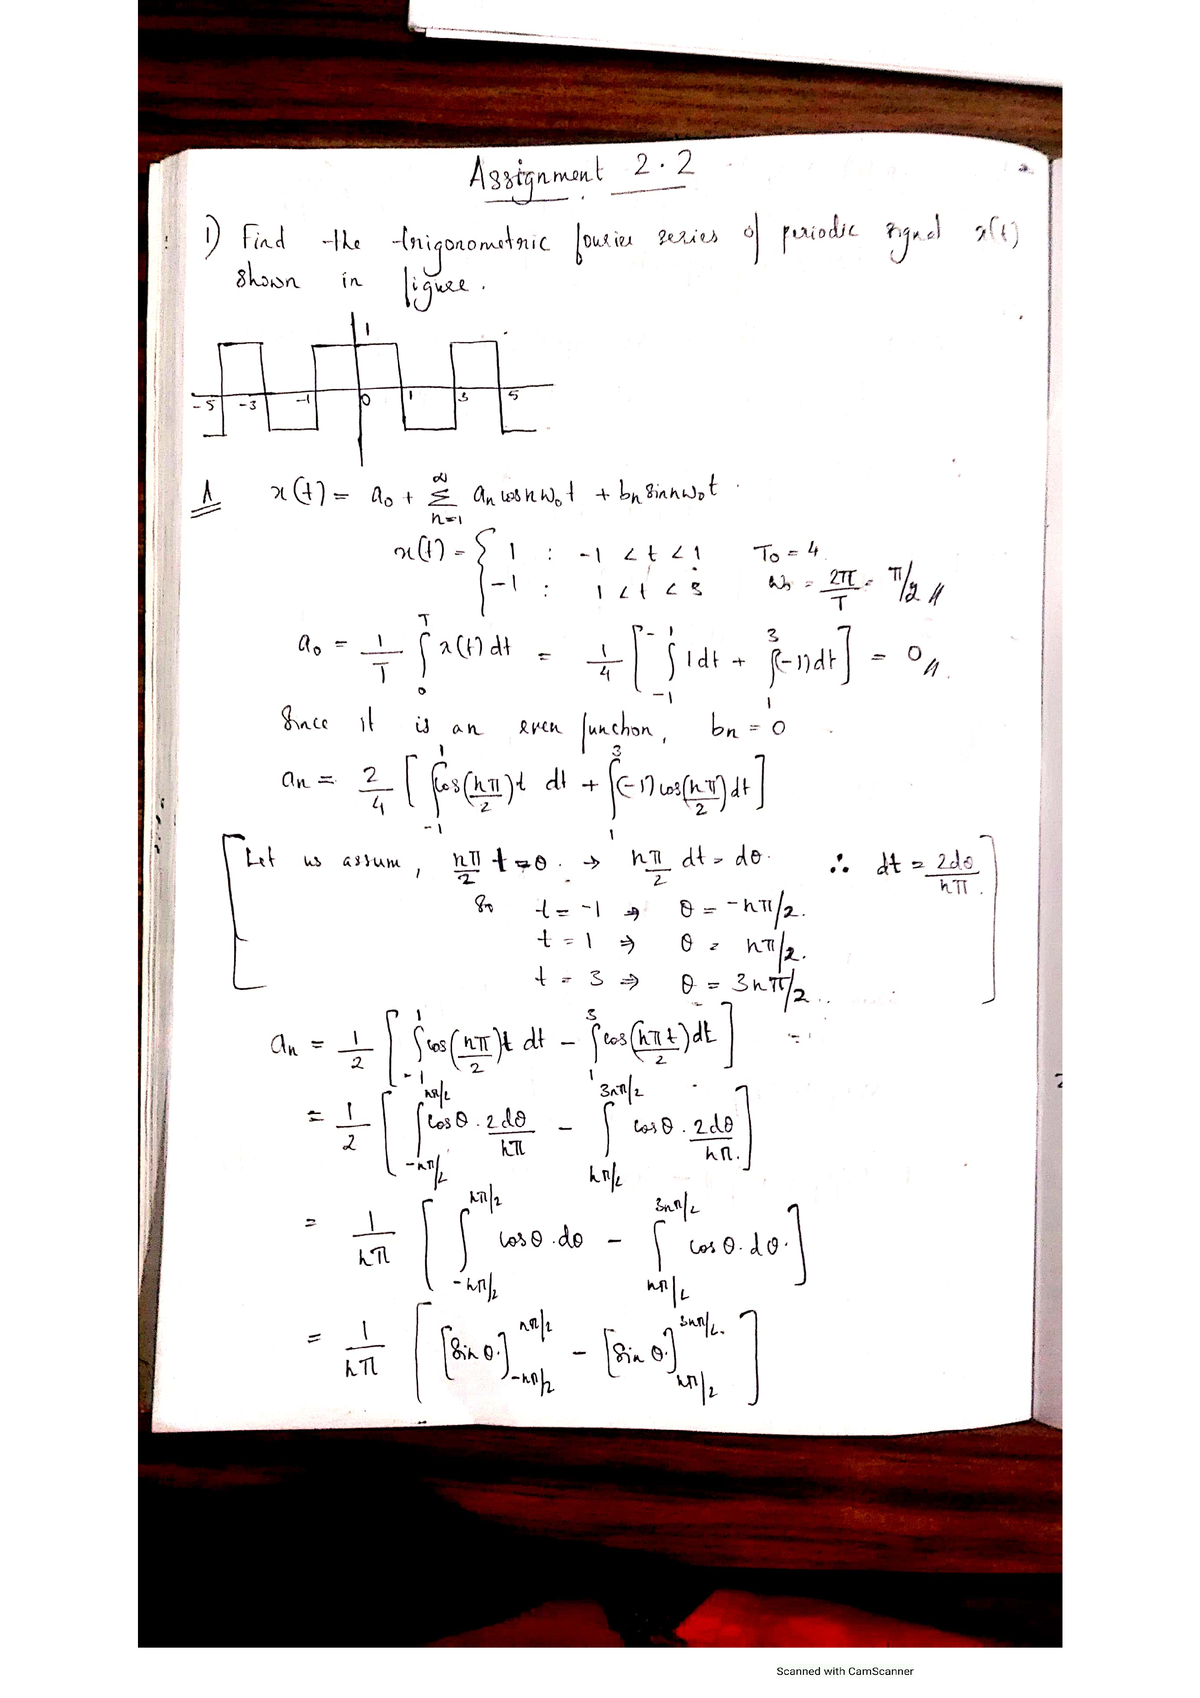 Assignment 2.2
1) Find the trigonometric fourier series of periodic signal x(t)
shown in figure.
1
-5 -3 -1 0 1 3 5
A x(t) = a₀ + Σ_{n=1}^{∞} aₙ cos nω₀t + bₙ sin nω₀t .
x(t) = { 1 : -1 < t < 1 T₀ = 4
-1 : 1 < t < 3 ω₀ = 2π/T = π/2 //
a₀ = 1/T ∫₀^T x(t) dt = 1/4 [ ∫_{-1}^{1} 1 dt + ∫_{1}^{3} (-1) dt ] = 0 //.
Since it is an even function, bₙ = 0 .
aₙ = 2/4 [ ∫_{-1}^{1} cos(nπ/2)t dt + ∫_{1}^{3} (-1) cos(nπ/2) dt ]
[ Let us assum, nπ/2 t = θ . → nπ/2 dt = dθ . ∴ dt = 2dθ/nπ . ]
So t = -1 ⇒ θ = -nπ/2.
t = 1 ⇒ θ = nπ/2.
t = 3 ⇒ θ = 3nπ/2 ..
aₙ = 1/2 [ ∫_{-1}^{1} cos(nπ/2)t dt − ∫_{1}^{3} cos(nπt/2) dt ]
= 1/2 [ ∫_{-nπ/2}^{nπ/2} cos θ . 2dθ/nπ − ∫_{nπ/2}^{3nπ/2} cos θ . 2dθ/nπ. ]
= 1/nπ [ ∫_{-nπ/2}^{nπ/2} cos θ . dθ − ∫_{nπ/2}^{3nπ/2} cos θ . dθ . ]
= 1/nπ [ [sin θ.]_{-nπ/2}^{nπ/2} − [sin θ.]_{nπ/2}^{3nπ/2.} ]
Scanned with CamScanner